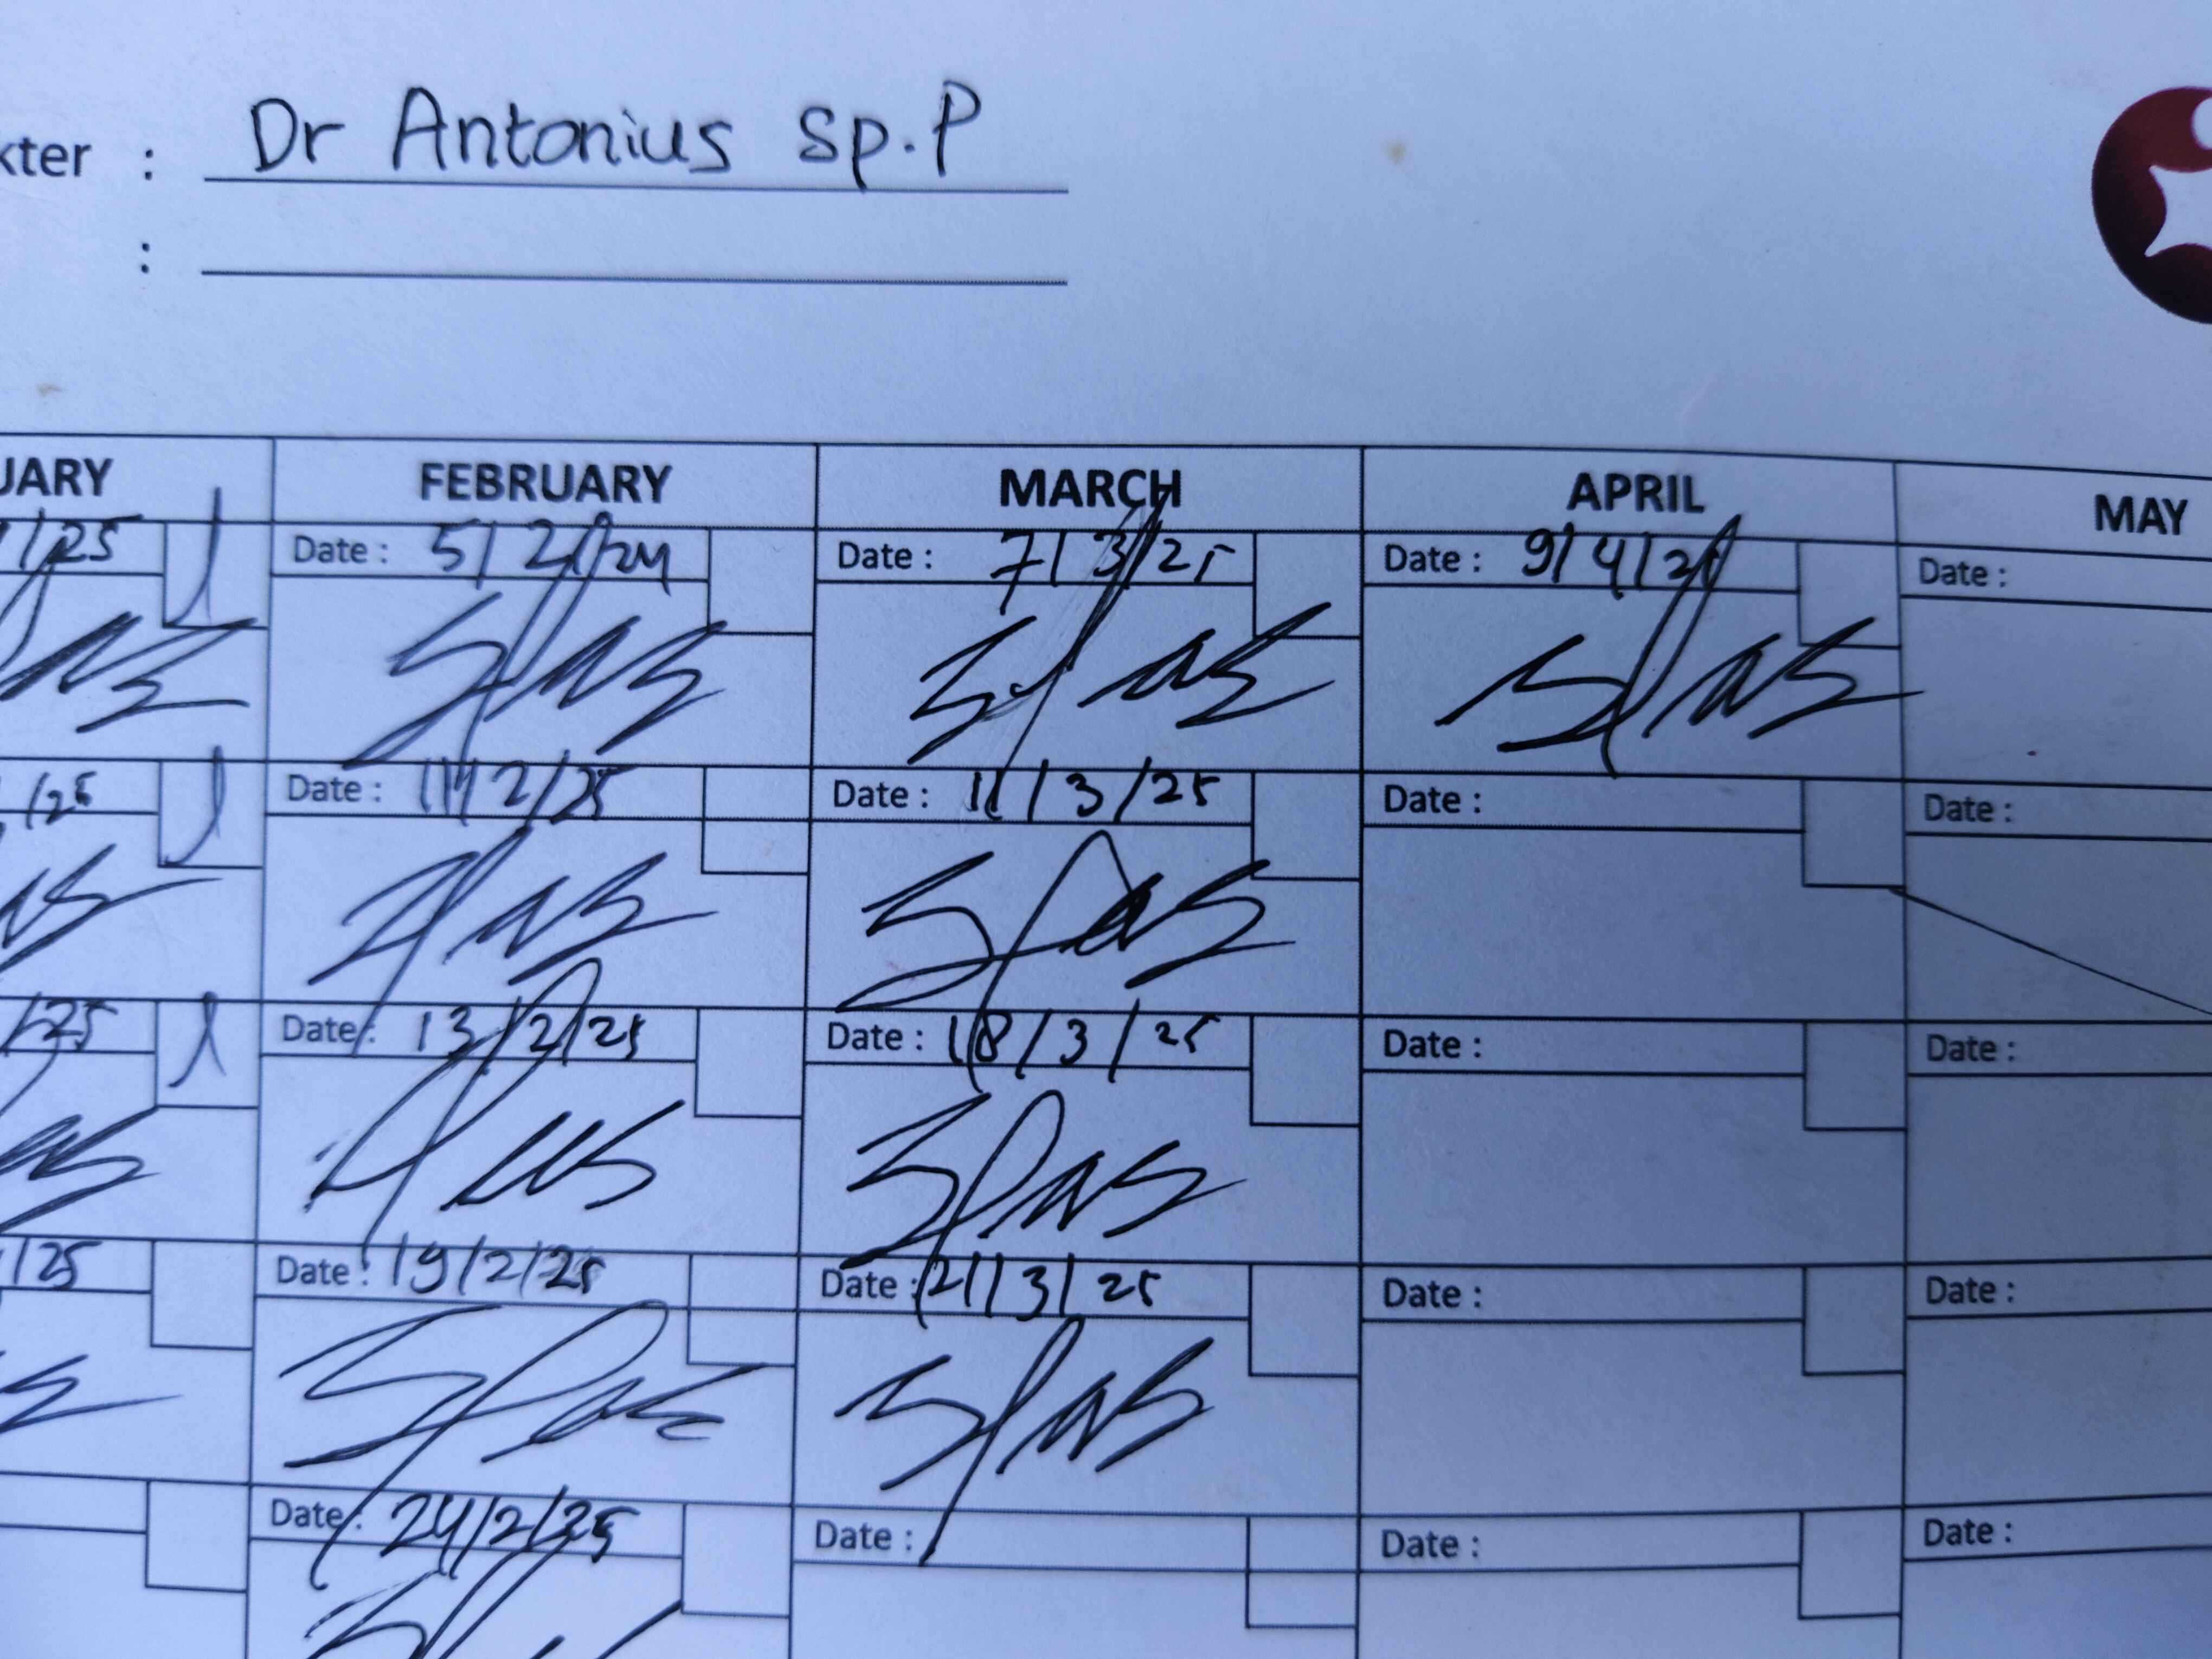 kter : Dr Antonius Sp.P
:
UARY FEBRUARY MARCH APRIL MAY
/25 Date : 5/2/24 Date : 7/3/25 Date : 9/4/2 Date :
/25 Date : 11/2/25 Date : 11/3/25 Date : Date :
/25 Date : 13/2/25 Date : 18/3/25 Date : Date :
/25 Date : 19/2/25 Date : 21/3/25 Date : Date :
Date : 24/2/25 Date : Date : Date :